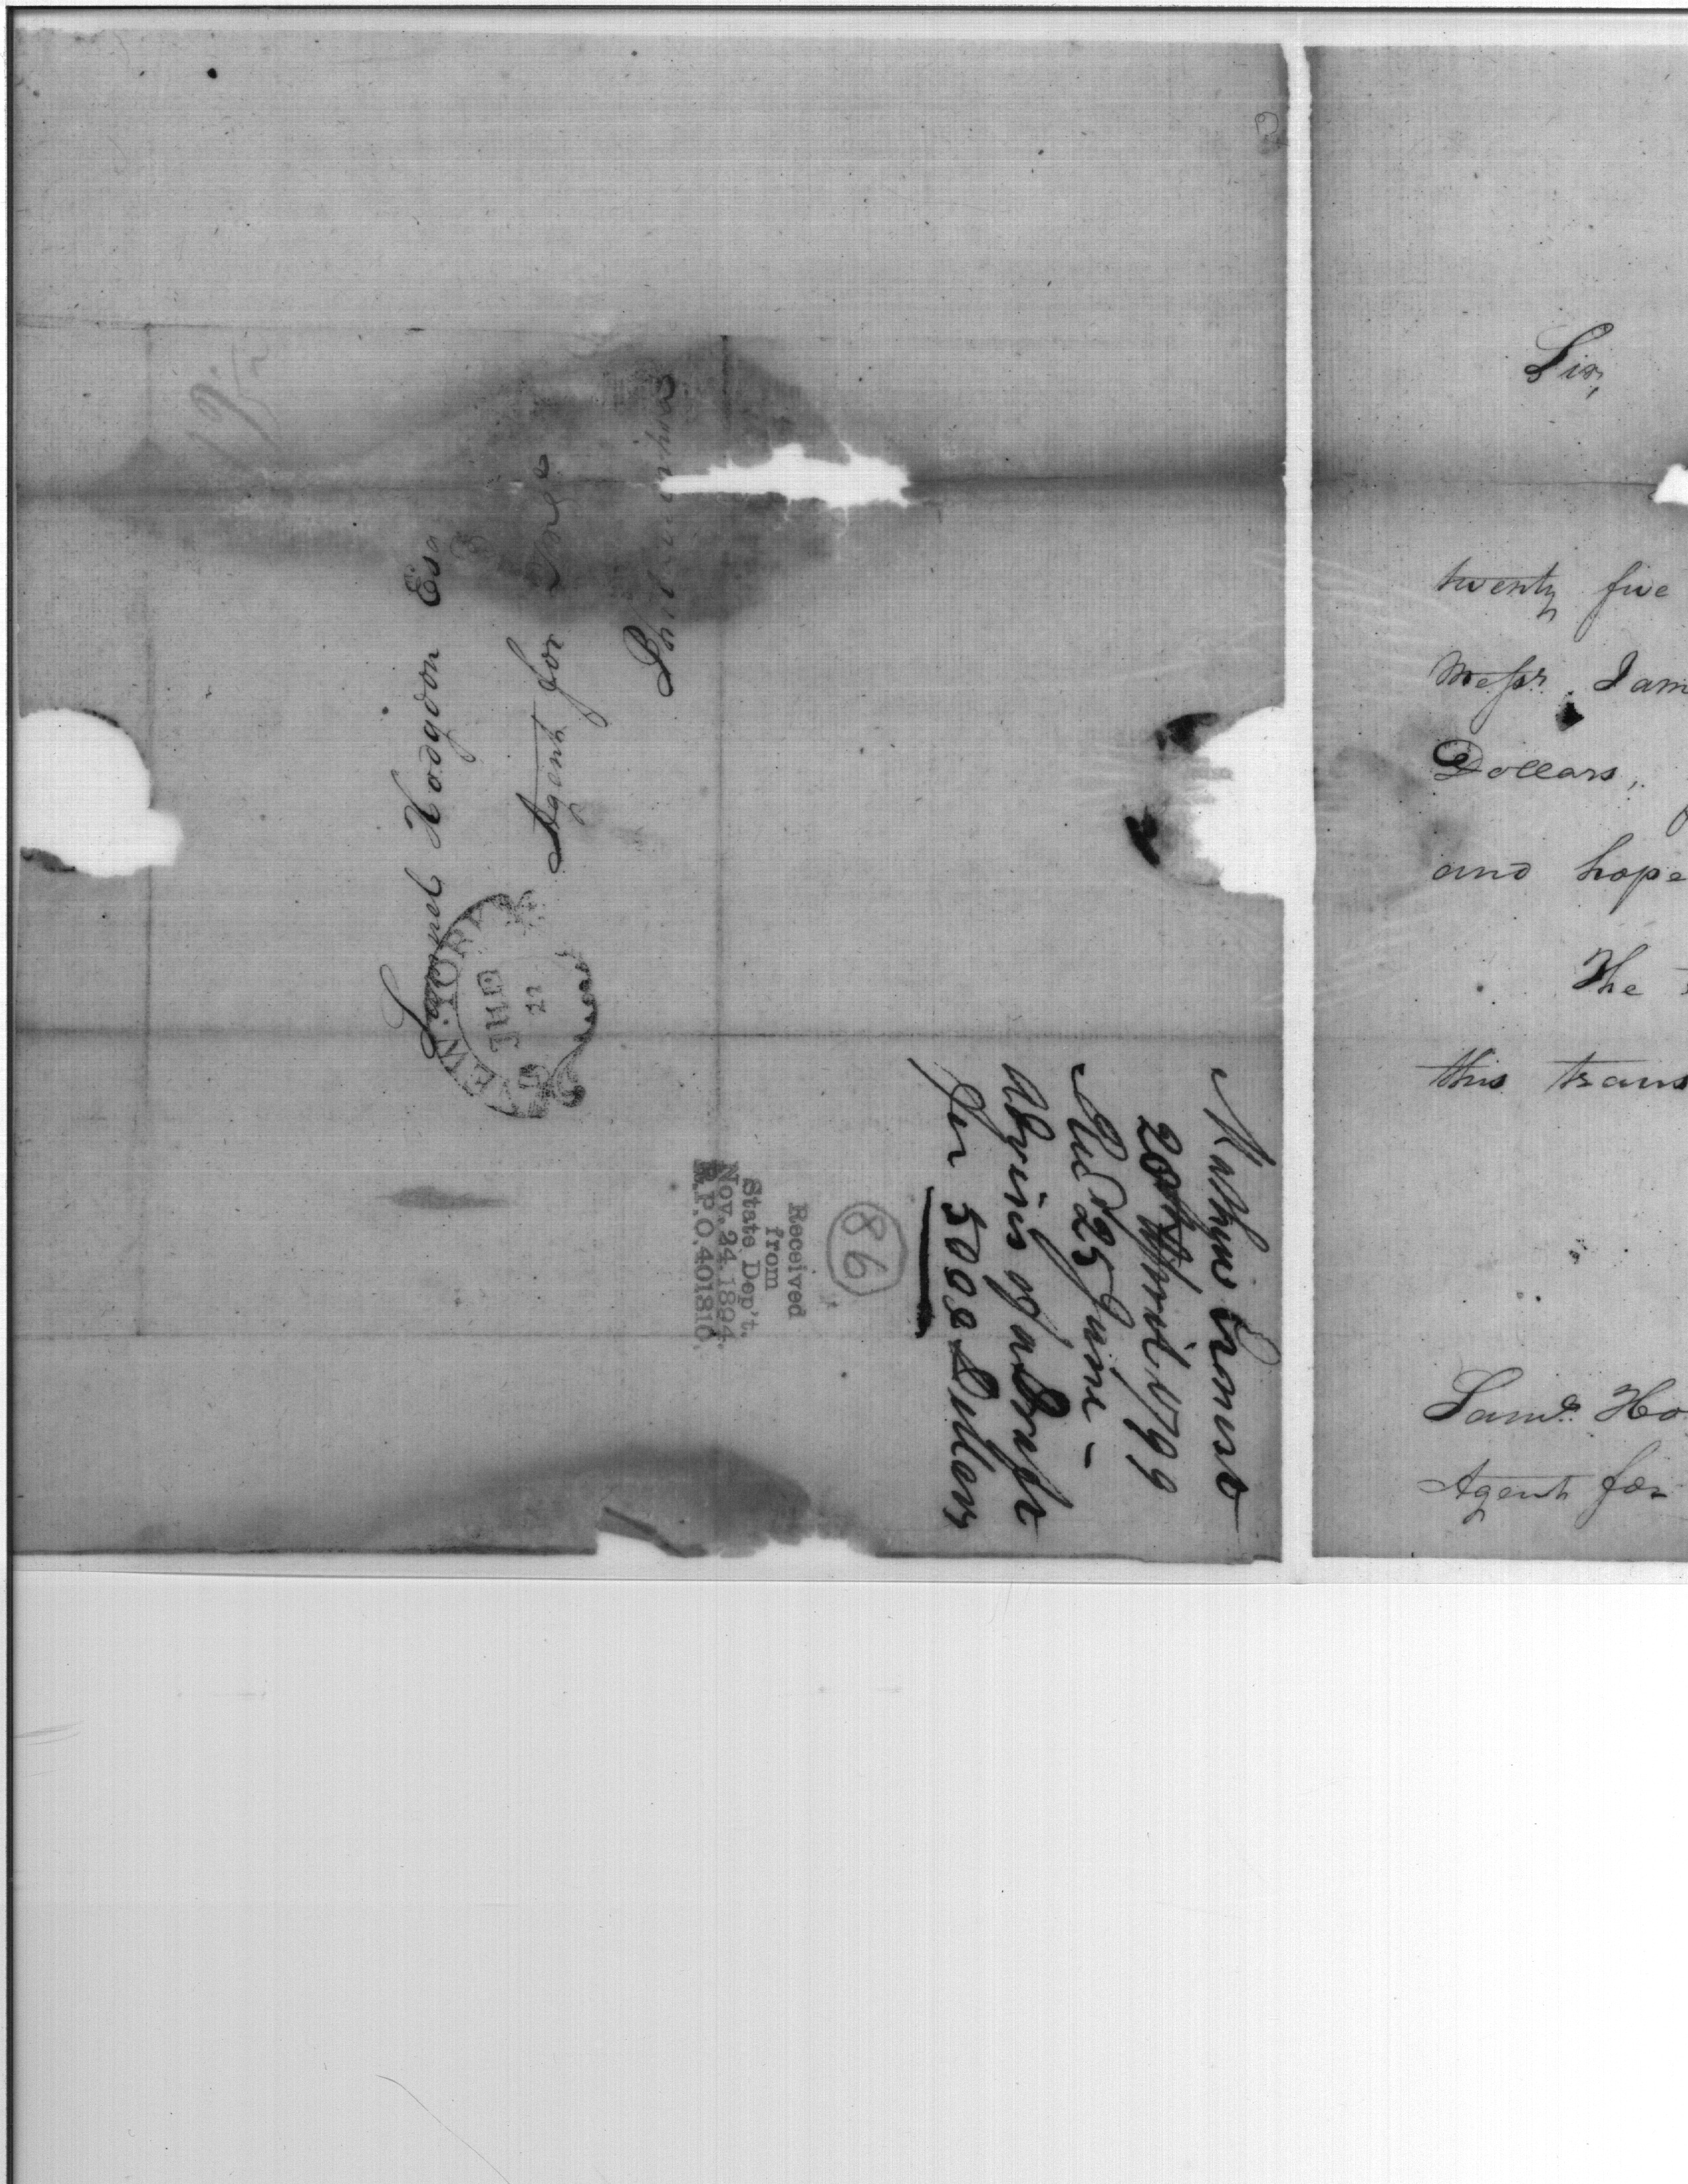 17 1/2
Samuel Hodgdon Esq
Agent for
Philadelphia
NEW YORK
JUE
22
Matthew Ernest
20th April 1799
Rec'd 25 June –
Advises of a Draft
for 5000 Dollars
86
Received
from
State Dep't.
Nov. 24, 1894.
R.P.O. 401810.
Sir,
twenty five
Messr. Jam
Dollars,
and hope
The
this trans
Saml. Ho
Agent for